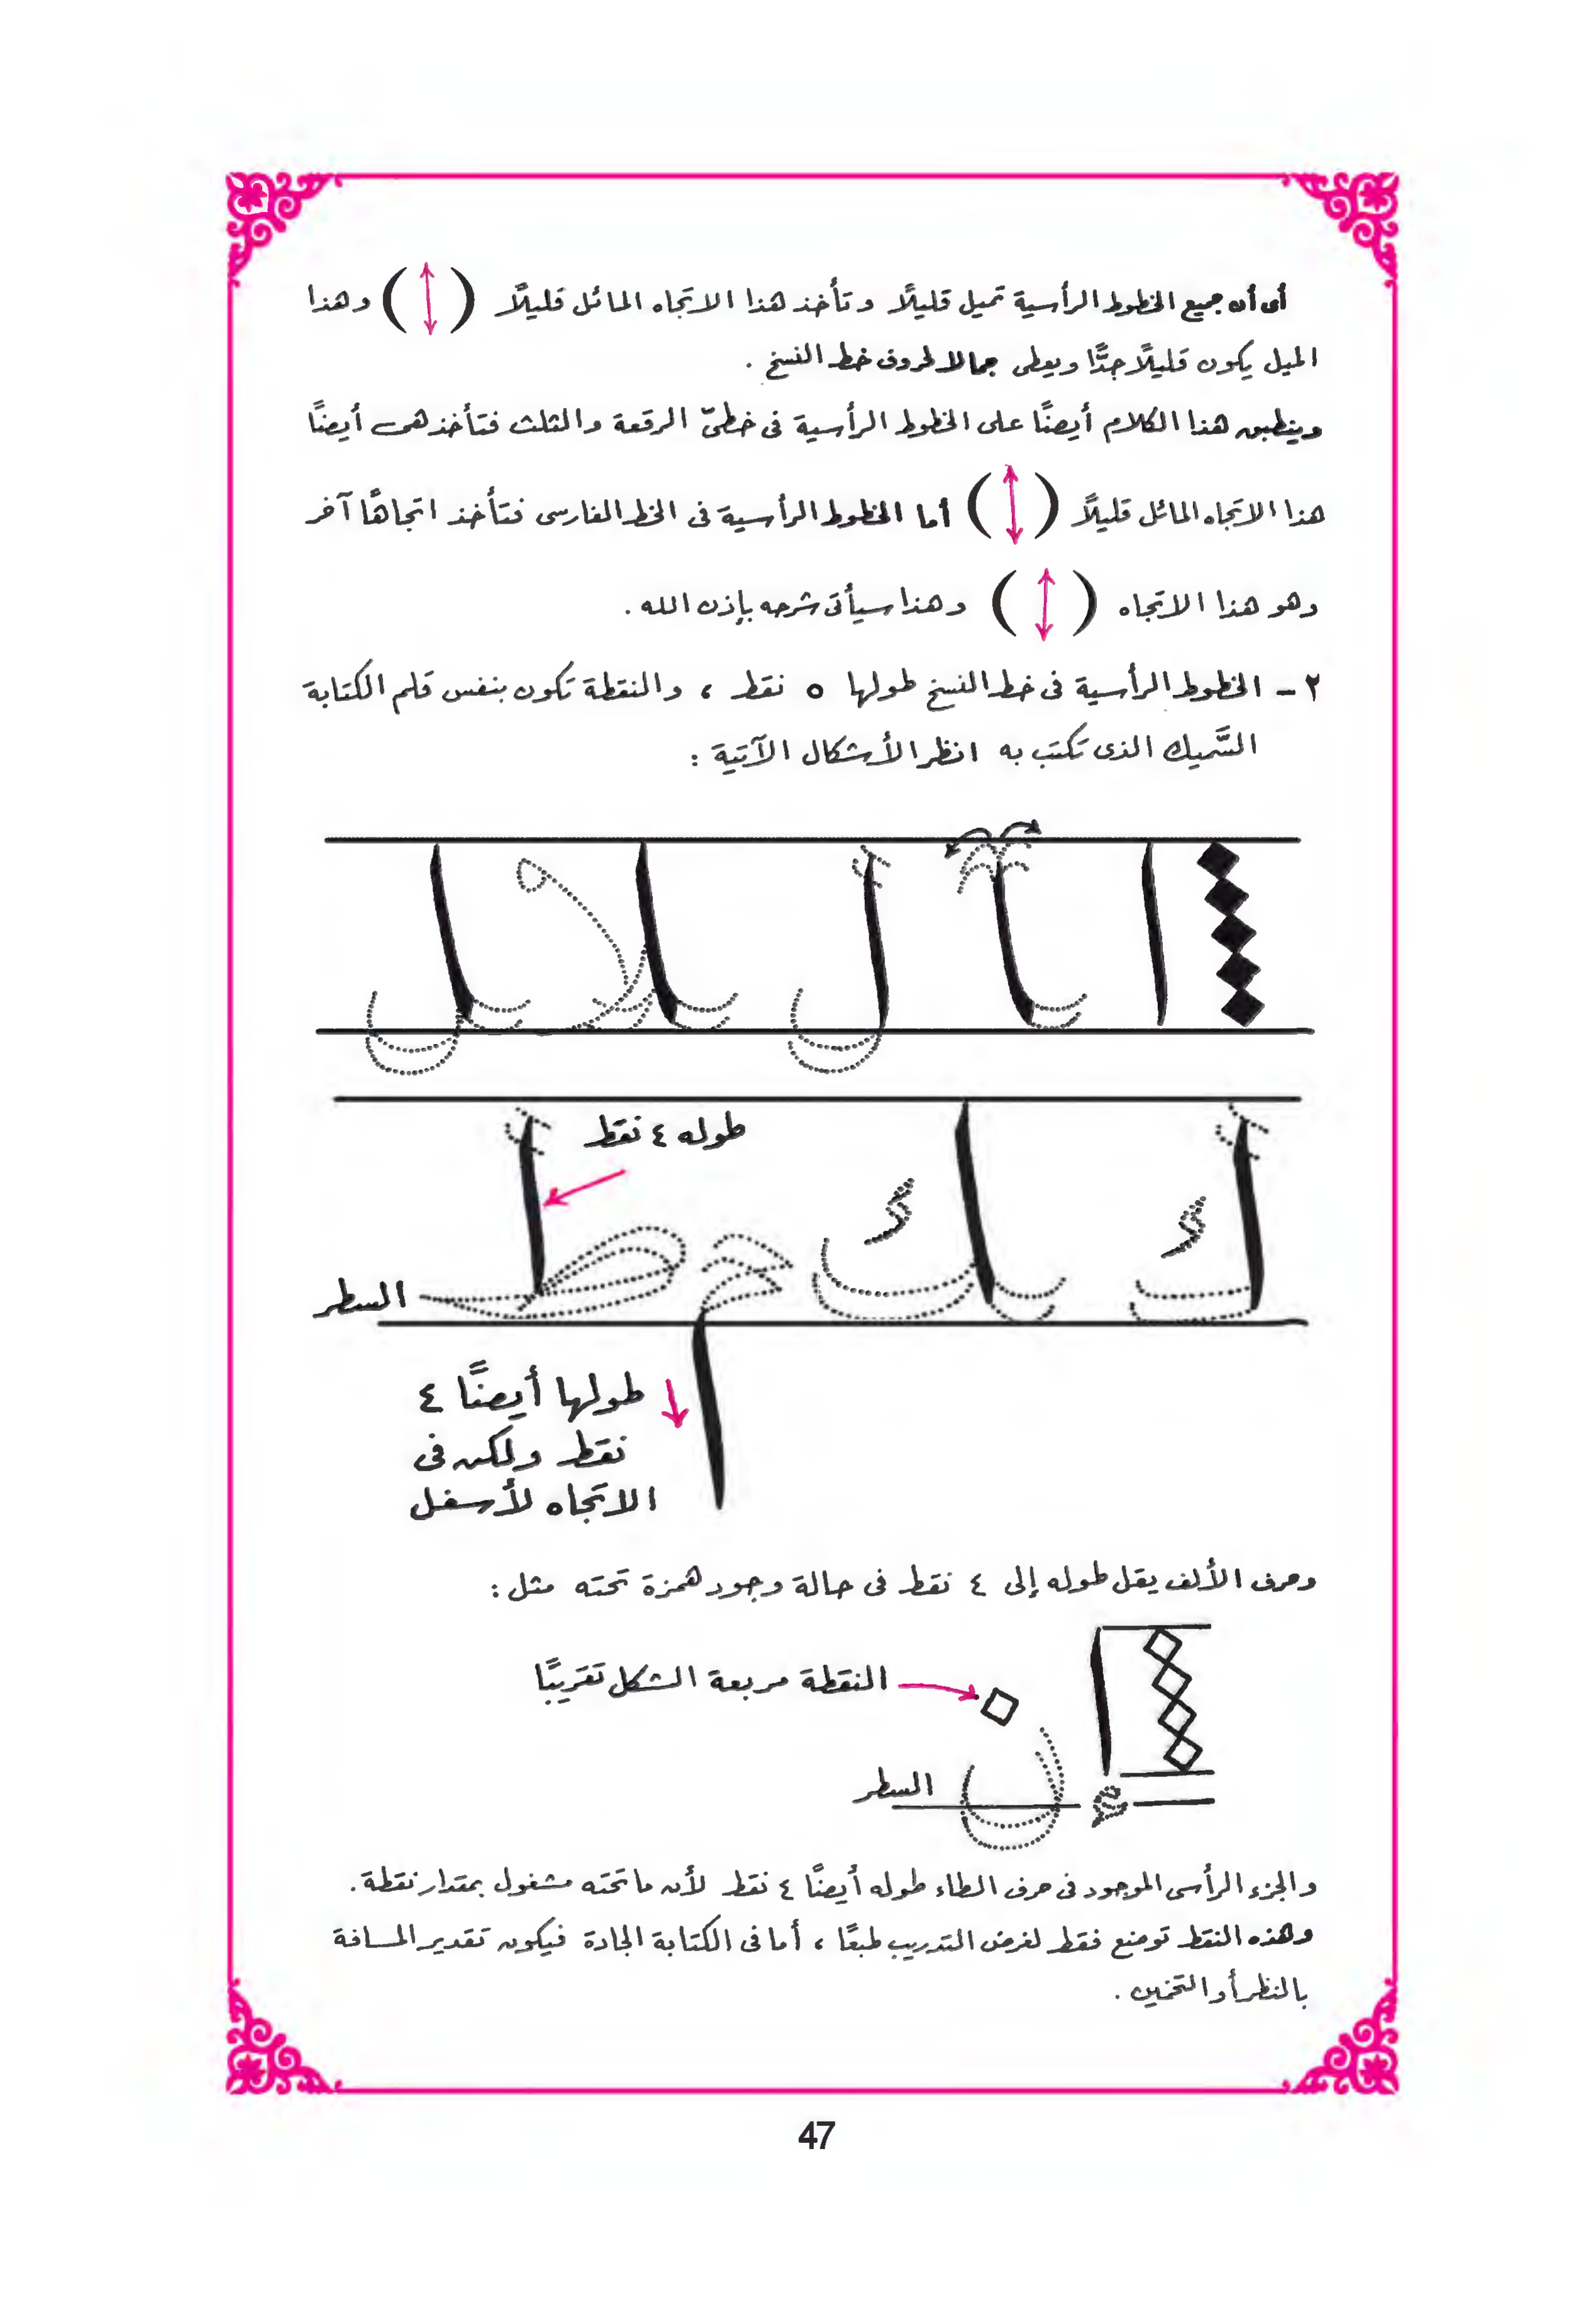 أى أن جميع الخطوط الرأسية تميل قليلًا وتأخذ هذا الاتجاه المائل قليلًا ( ↕ ) وهذا
الميل يكون قليلًا جدًّا ويعطى جمالا لحروف خط النسخ .
وينطبق هذا الكلام أيضًا على الخطوط الرأسية فى خطىّ الرقعة والثلث فتأخذ هى أيضًا
هذا الاتجاه المائل قليلًا ( ↕ ) أما الخطوط الرأسية فى الخط الفارسى فتأخذ اتجاهًا آخر
وهو هذا الاتجاه ( ↕ ) وهذا سيأتى شرحه بإذن الله .
٢ - الخطوط الرأسية فى خط النسخ طولها ٥ نقط ، والنقطة تكون بنفس قلم الكتابة
السَّميك الذى تكتب به انظر الأشكال الآتية :
طوله ٤ نقط
السطر
طولها أيضًا ٤
نقط ولكن فى
الاتجاه لأسفل
وحرف الألف يقل طوله إلى ٤ نقط فى حالة وجود همزة تحته مثل :
النقطة مربعة الشكل تقريبًا
السطر
والجزء الرأسى الموجود فى حرف الطاء طوله أيضًا ٤ نقط لأن ما تحته مشغول بمقدار نقطة .
وهذه النقط توضع فقط لغرض التدريب طبعًا ، أما فى الكتابة الجادة فيكون تقدير المسافة
بالنظر أو التخمين .
47